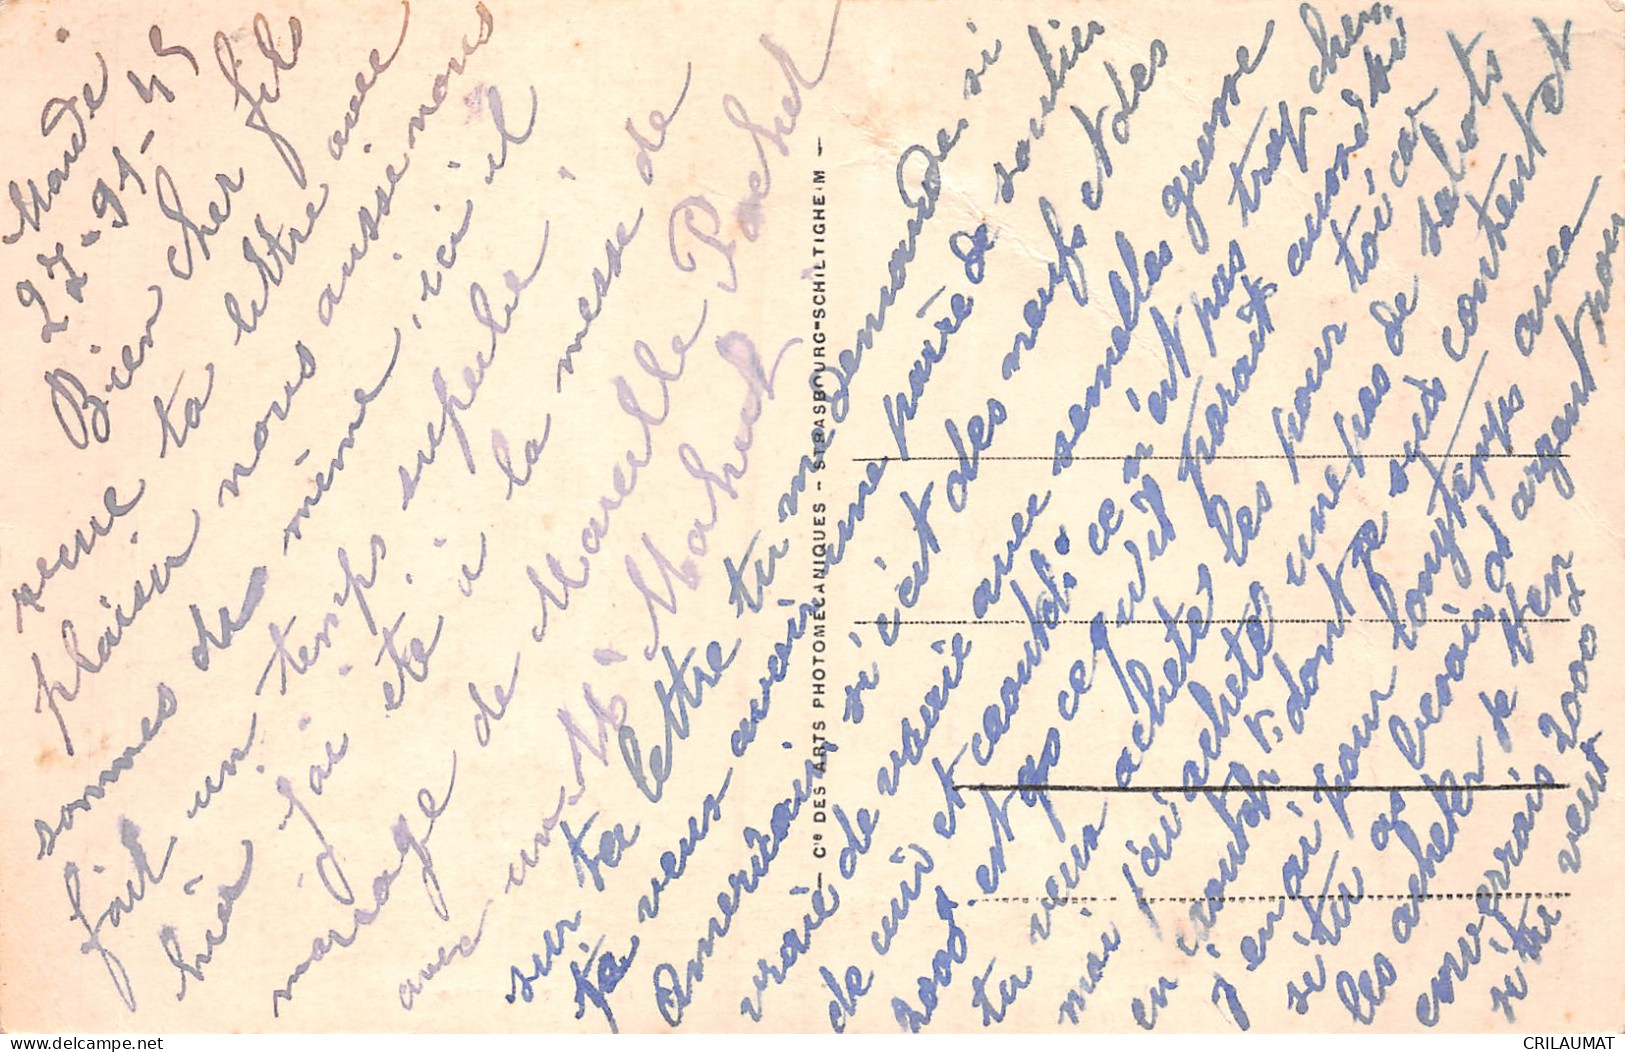 Mardi
27-91-45
Bien cher fils
reçue ta lettre avec
plaisir nous aussi nous
sommes de même, ici il
fait un temps superbe
hier j'ai été à la messe de
mariage de Marcelle Pochet
avec un M. Mahut
C<sup>ie</sup> DES ARTS PHOTOMÉCANIQUES - STRASBOURG-SCHILTIGHEIM
sur ta lettre tu me demande si
tu veux avoir une paire de soulier
Americain, si c'est des neufs et des
vraie de vraie avec semelles gresse
de cuir et caoutch. ce n'est pas trop cher
2000 et qs ce qu'il parait aumoitié
tu veux achetes les pour toi car
moi j'ai acheter une pas de sabots
en caoutch. dont je suis content et
j'en ai pour longtemps avec
si tu as besoin d'argent pour
les acheter je t'en
enverrais 2000
si tu veux
CRILAUMAT